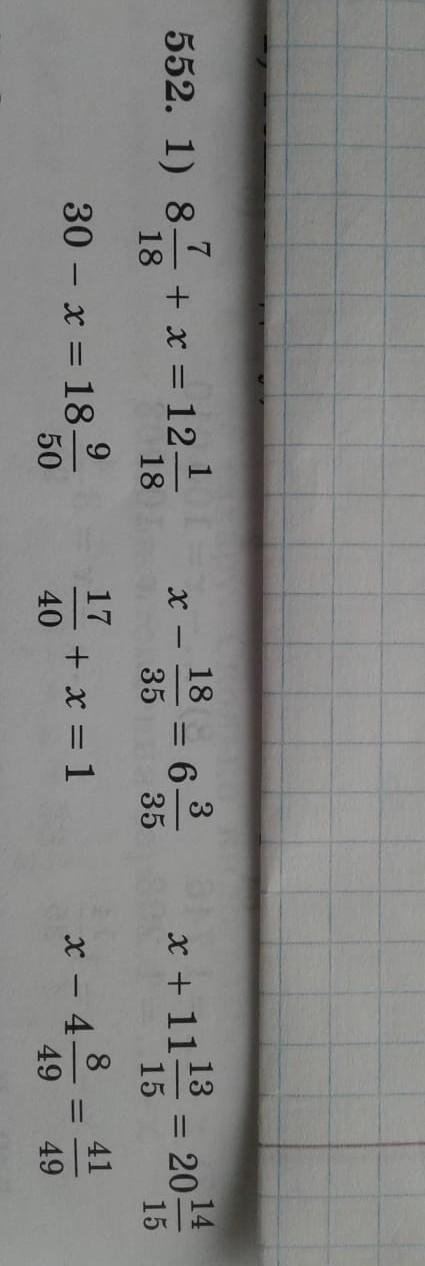 552. 1) 8 7/18 + x = 12 1/18 x − 18/35 = 6 3/35 x + 11 13/15 = 20 14/15
30 − x = 18 9/50 17/40 + x = 1 x − 4 8/49 = 41/49